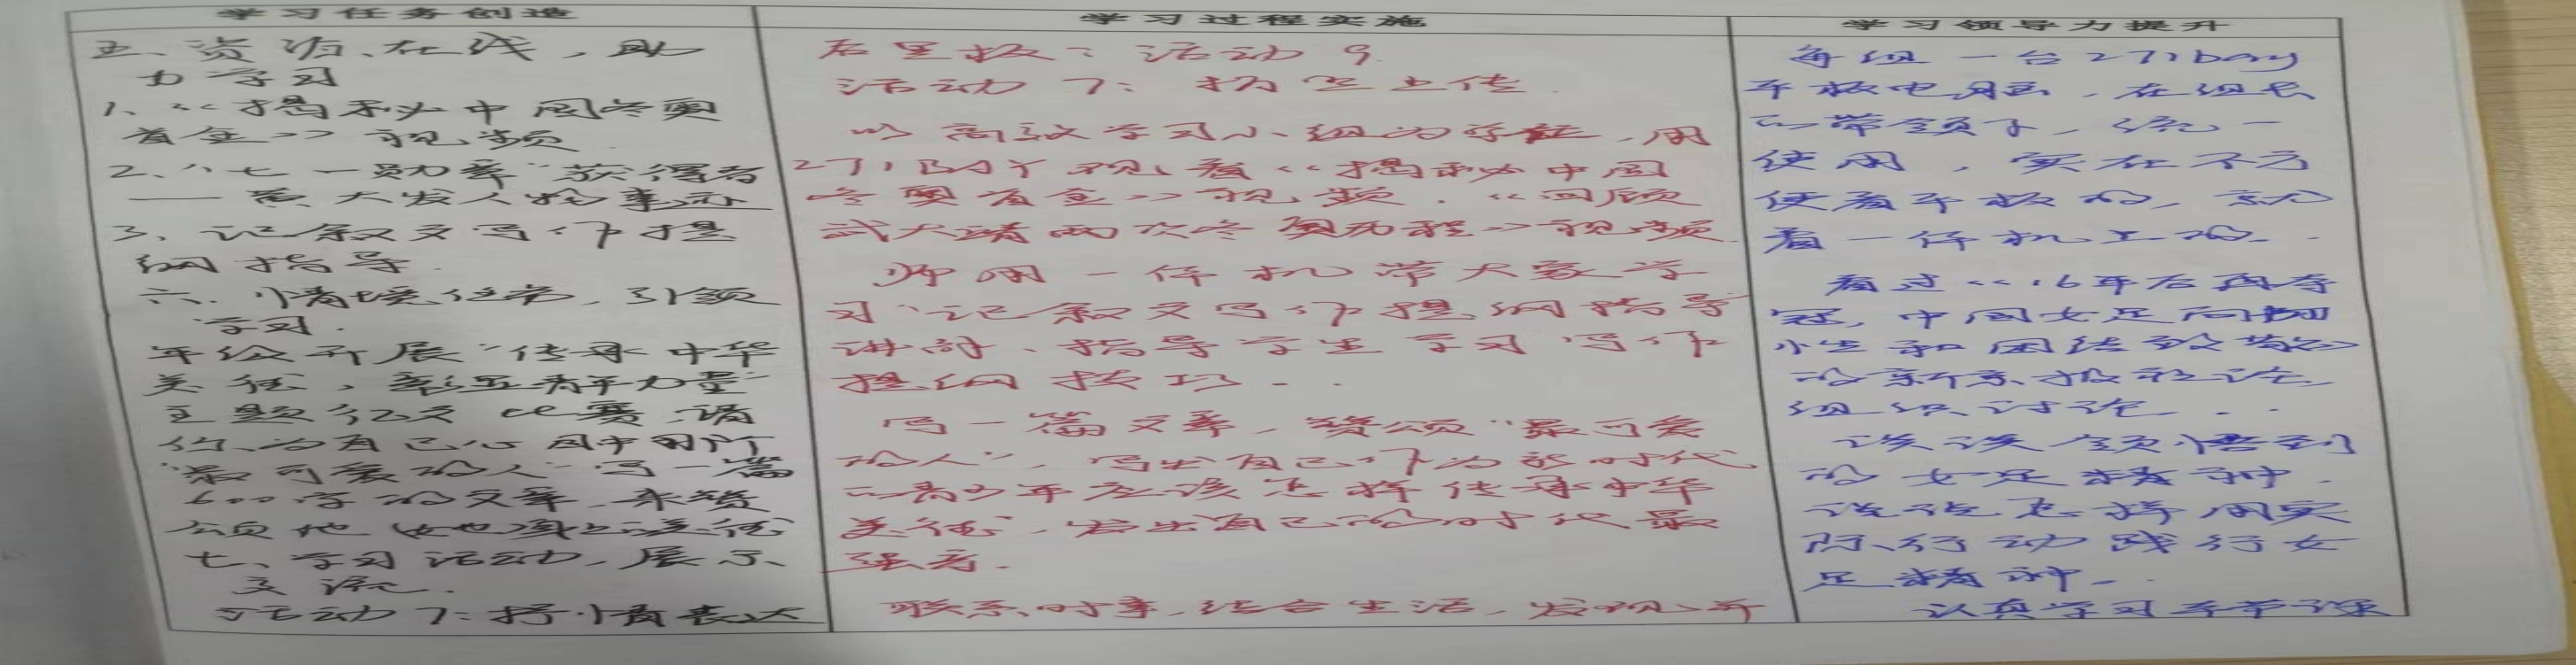 学习任务创造
五、资源在线，助
力学习
1、《揭秘中国冬奥
首金》视频
2、“七一勋章”获得者
——黄大发人物事迹
3、记叙文写作提
纲指导
六、情境任务，引领
学习.
年级开展“传承中华
美德，彰显青年力量”
主题征文比赛，请
你为自己心目中的
“最可爱的人”写一篇
600字的文章，来赞
颂他（她）身上的美德
七、学习活动，展示
交流.
活动7：抒情表达
学习过程实施
右黑板：活动9
活动7：拍照上传
以高效学习小组为单位，用
271BAY观看《揭秘中国
冬奥首金》视频，《回顾
武大靖两次冬奥历程》视频.
师用一体机带大家学
习“记叙文写作提纲指导”
讲评、指导学生学习写作
提纲技巧..
写一篇文章，赞颂“最可爱
的人”，写出自己作为新时代
的青少年应该怎样传承中华
美德，发出自己的时代最
强音.
联系时事，结合生活，发现并
学习领导力提升
每组一台271bay
平板电脑，在组长
的带领下，统一
使用，实在不方
便看平板的，就
看一体机上的..
看过《16年后再夺
冠，中国女足向
和团结致敬》
的新京报社论，
组织讨论...
谈谈领悟到
的女足精神.
说说怎样用实
际行动践行女
足精神..
认真学习本节课